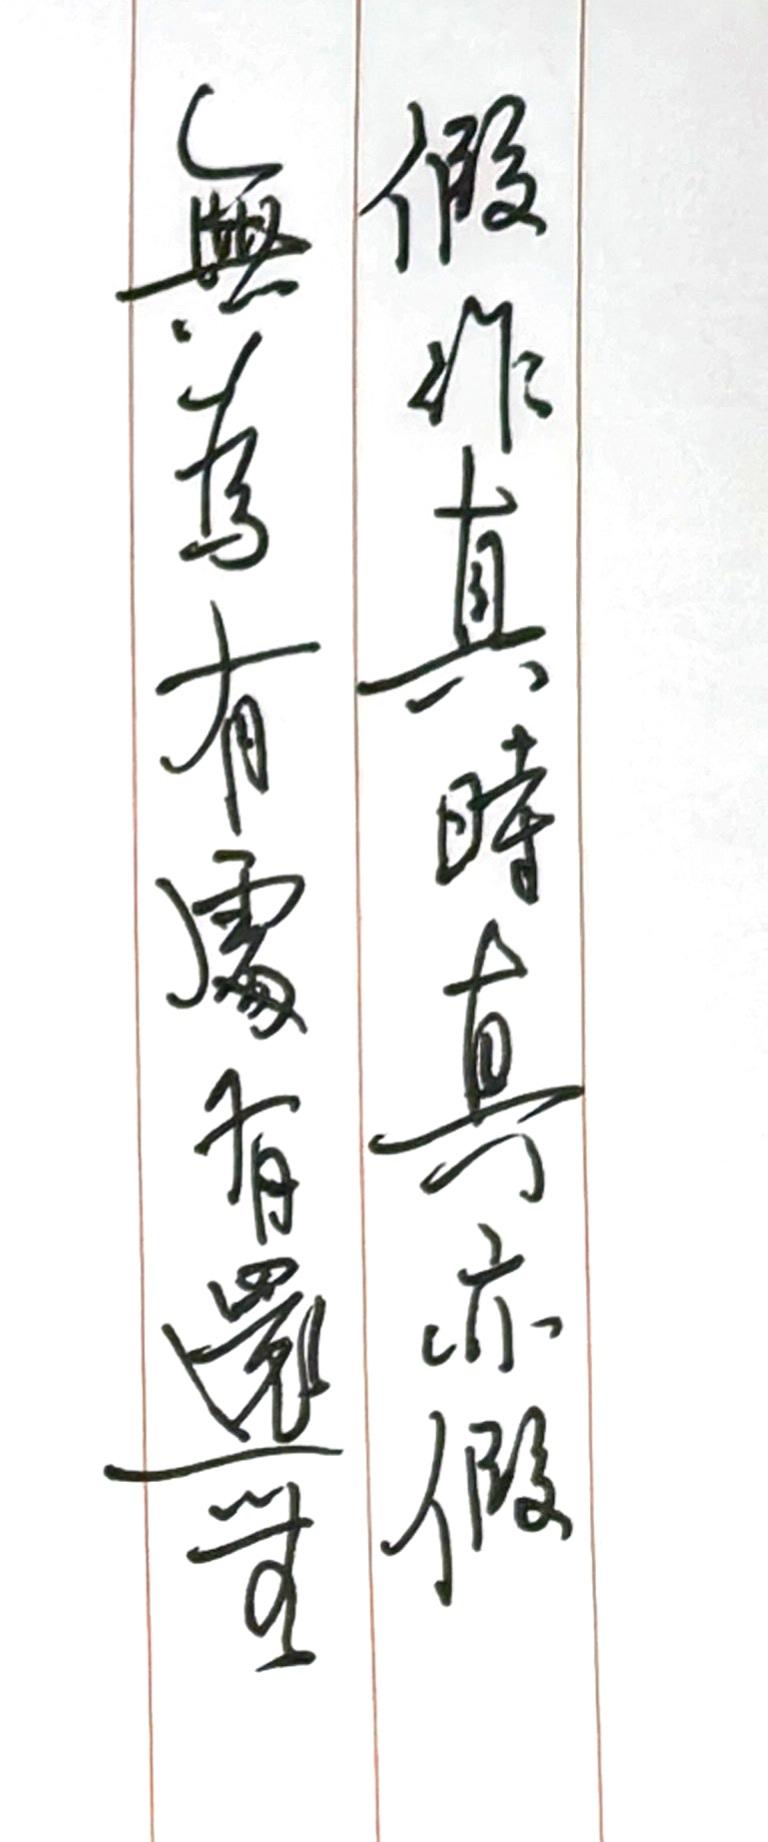 假作真時真亦假
無為有處有還無